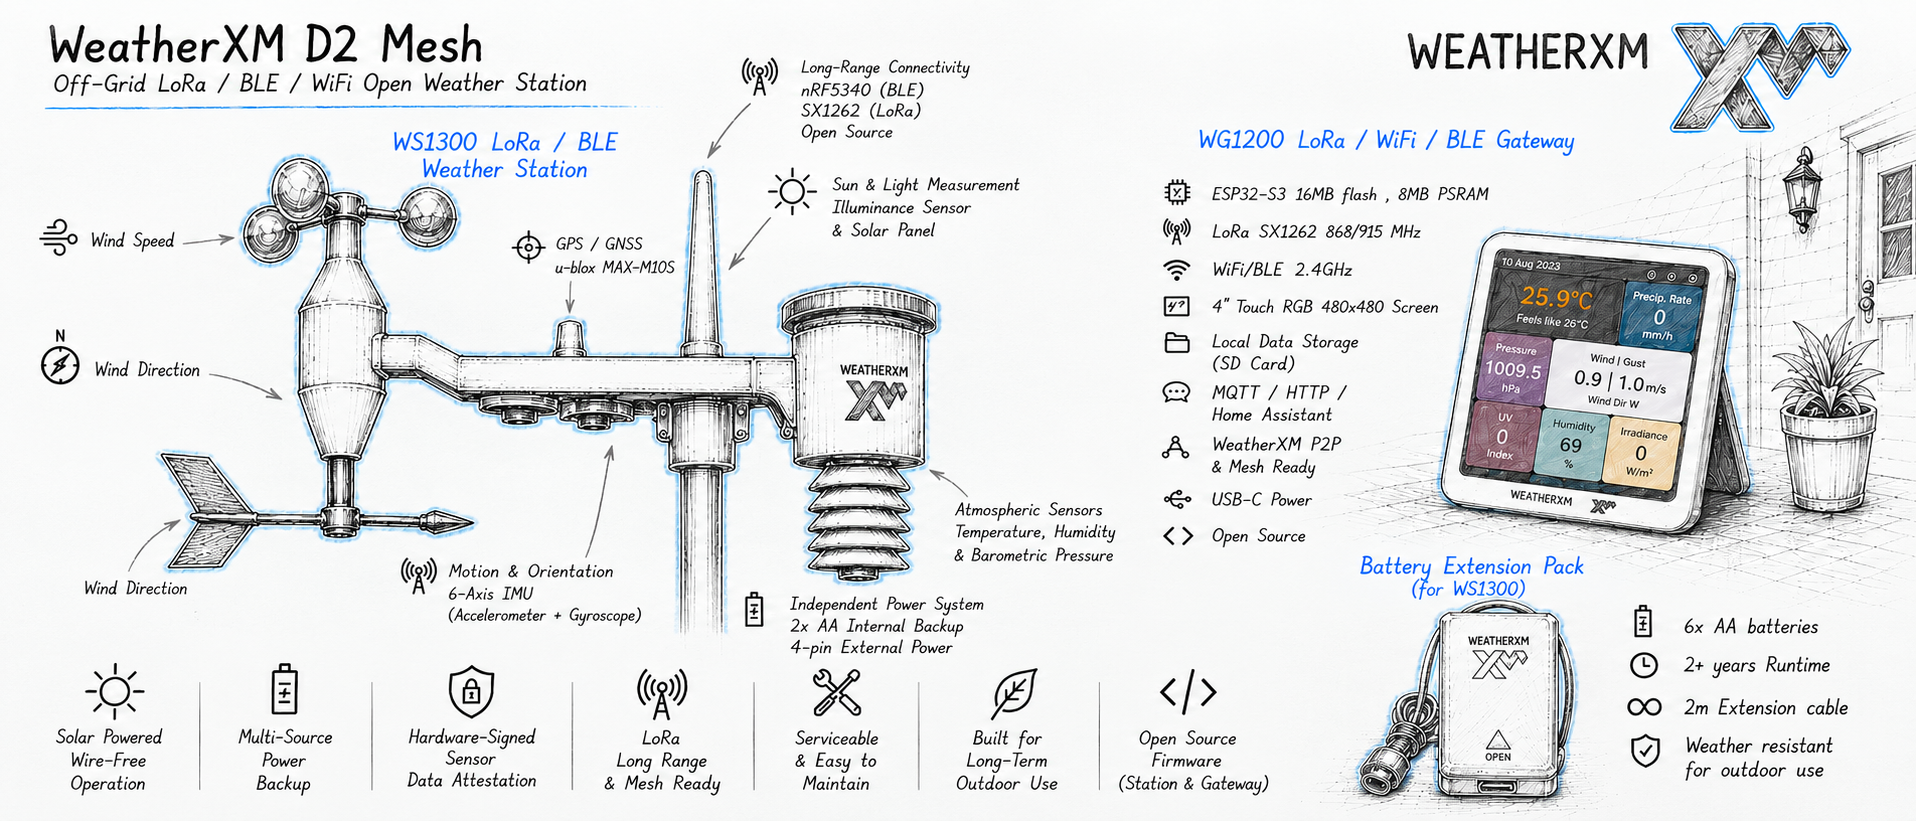 WeatherXM D2 Mesh
Off-Grid LoRa / BLE / WiFi Open Weather Station
WS1300 LoRa / BLE
Weather Station
Wind Speed
N
Wind Direction
Wind Direction
GPS / GNSS
u-blox MAX-M10S
Long-Range Connectivity
nRF5340 (BLE)
SX1262 (LoRa)
Open Source
Sun & Light Measurement
Illuminance Sensor
& Solar Panel
WEATHERXM
XM
Atmospheric Sensors
Temperature, Humidity
& Barometric Pressure
Motion & Orientation
6-Axis IMU
(Accelerometer + Gyroscope)
Independent Power System
2x AA Internal Backup
4-pin External Power
Solar Powered
Wire-Free
Operation
Multi-Source
Power
Backup
Hardware-Signed
Sensor
Data Attestation
LoRa
Long Range
& Mesh Ready
Serviceable
& Easy to
Maintain
Built for
Long-Term
Outdoor Use
Open Source
Firmware
(Station & Gateway)
WEATHERXM
XM
WG1200 LoRa / WiFi / BLE Gateway
ESP32-S3 16MB flash , 8MB PSRAM
LoRa SX1262 868/915 MHz
WiFi/BLE 2.4GHz
4" Touch RGB 480x480 Screen
Local Data Storage
(SD Card)
MQTT / HTTP /
Home Assistant
WeatherXM P2P
& Mesh Ready
USB-C Power
Open Source
10 Aug 2023
25.9°C
Feels like 26°C
Precip. Rate
0
mm/h
Pressure
1009.5
hPa
Wind | Gust
0.9 | 1.0 m/s
Wind Dir W
UV
0
Index
Humidity
69
%
Irradiance
0
W/m²
WEATHERXM XM
Battery Extension Pack
(for WS1300)
WEATHERXM
XM
OPEN
6x AA batteries
2+ years Runtime
2m Extension cable
Weather resistant
for outdoor use